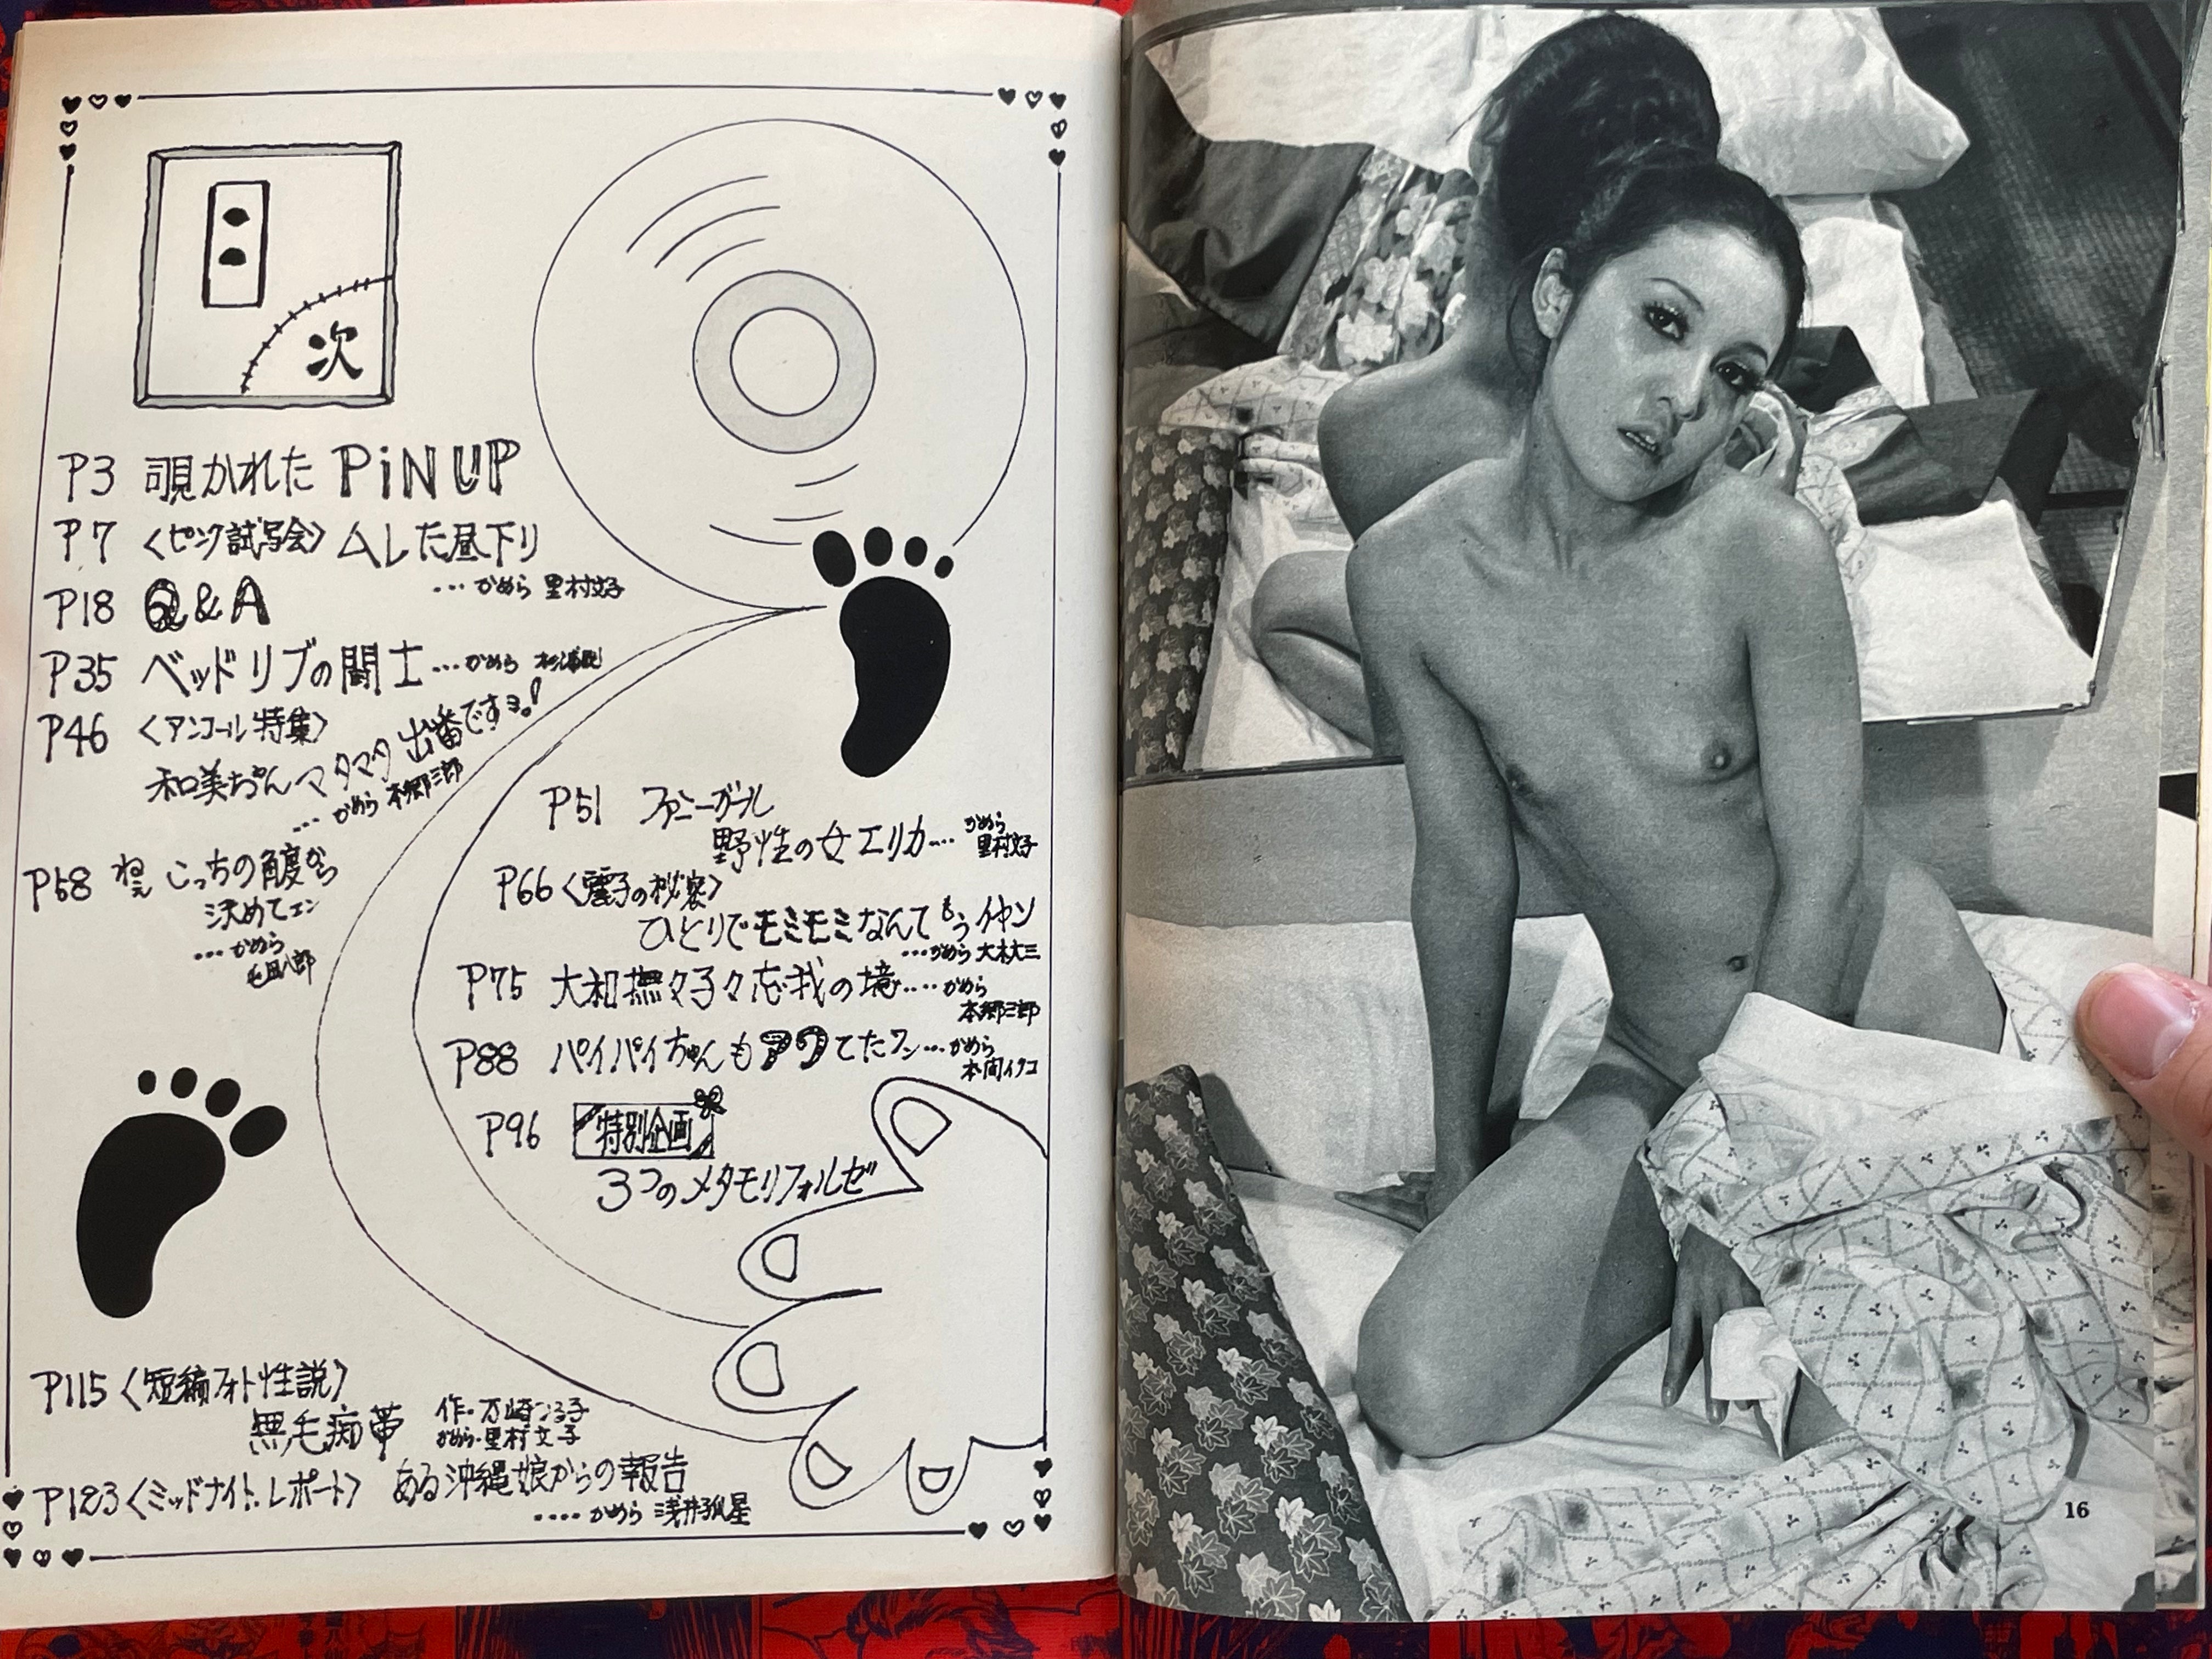 目次
P3 覗かれた PiNUP
P7 〈ピンク試写会〉ムレた昼下り
…かめら 里村文子
P18 Q&A
P35 ベッドリブの闘士…かめら
P46 〈アンコール特集〉
和美ちゃんマタマタ出番ですョ!
…かめら 本郷三郎
P58 ねぇ こっちの角度から
決めてェン
…かめら
P51 ファニーガール
野性の女エリカ…かめら
里村文子
P66〈麗子の秘密〉
ひとりでモミモミなんてもうイヤン
…かめら
P75 大和撫々子々忘我の境…かめら
本郷三郎
P88 パイパイちゃんもアワてたワン…かめら
P96 特別企画
3つのメタモリフォルゼ
P115〈短編フォト性説〉
無毛痴帯
作・万崎つる子
かめら・里村文子
P123〈ミッドナイト・レポート〉 ある沖縄娘からの報告
…かめら 浅井孤星
16